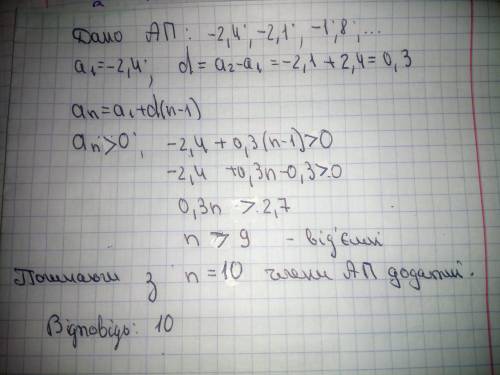 Дано АП: -2,4; -2,1; -1,8; ...
a₁=-2,4; d=a₂-a₁=-2,1+2,4=0,3
aₙ=a₁+d(n-1)
aₙ>0; -2,4+0,3(n-1)>0
-2,4 +0,3n-0,3>0
0,3n >2,7
n > 9 - від'ємні
Починаючи з n=10 члени АП додатні.
Відповідь: 10